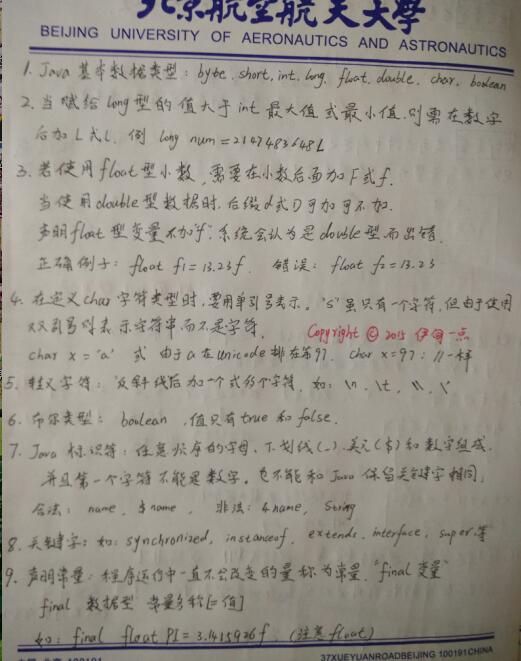 北京航空航天大學
BEIJING UNIVERSITY OF AERONAUTICS AND ASTRONAUTICS
1. Java 基本数据类型：byte, short, int, long, float, double, char, boolean
2. 当赋给 long 型的值大于 int 最大值或最小值,则需在数字
后加 L 或 l. 例 long num = 2147483648L
3. 若使用 float 型小数,需要在小数后面加 F 或 f.
当使用 double 型数据时,后缀 d 或 D 可加可不加.
声明 float 型变量不加 'f', 系统会认为是 double 型而出错.
正确例子：float f1 = 13.23f. 错误：float f2 = 13.23
4. 在定义 char 字符类型时,要用单引号表示. 's' 虽只有一个字符,但由于使用
双引号则表示字符串而不是字符.
Copyright © 2015 伊甸一点
char x = 'a' 或 由于 a 在 unicode 排在第97. char x = 97; // 一样
5. 转义字符：反斜线后加一个或多个字符. 如：\n, \t, \\, \'
6. 布尔类型：boolean, 值只有 true 和 false.
7. Java 标识符：任意顺序的字母、下划线(_)、美元($)和数字组成.
并且第一个字符不能是数字. 也不能和 Java 保留关键字相同.
合法：name, $name, 非法：4name, String
8. 关键字：如：synchronized, instanceof, extends, interface, super 等
9. 声明常量：程序运行中一直不会改变的量称为常量. "final 变量"
final 数据型 常量名称[=值]
如：final float PI = 3.1415926f. (注意 float)
37XUEYUANROADBEIJING 100191CHINA